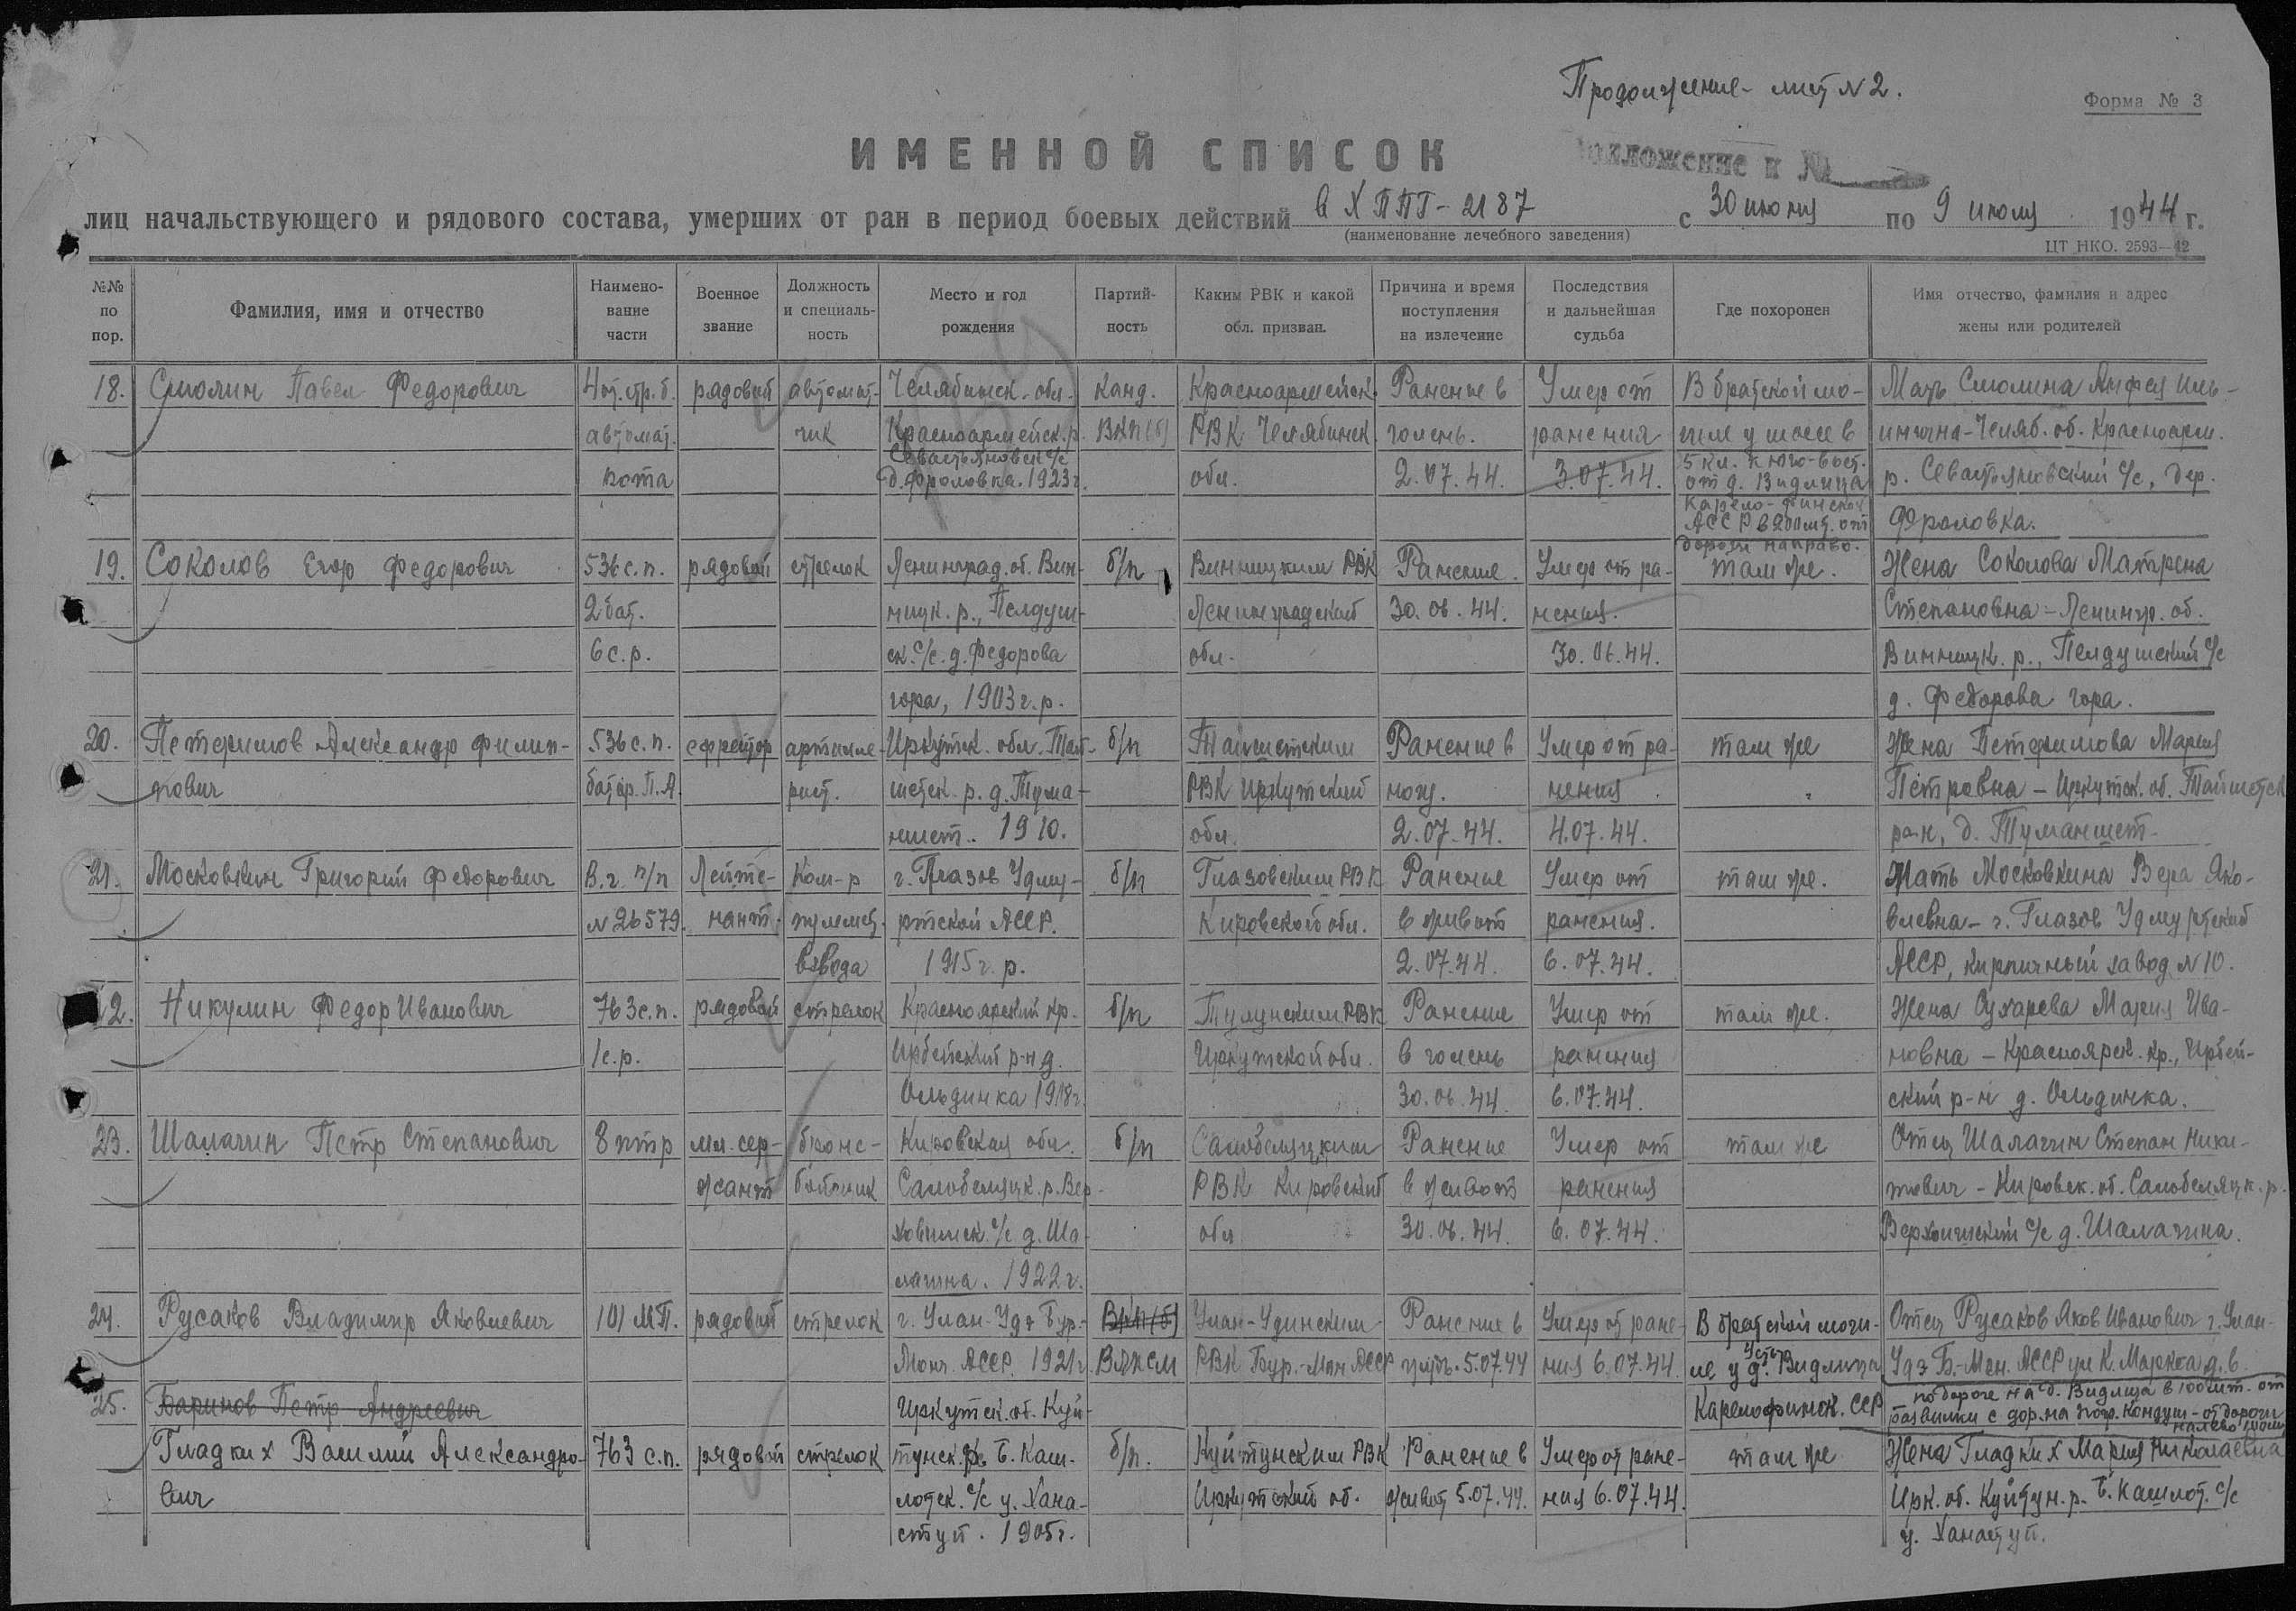 Продолжение - лист N 2.
Форма № 3
ИМЕННОЙ СПИСОК
Приложение к №
лиц начальствующего и рядового состава, умерших от ран в период боевых действий в ХППГ-2187 с 30 июня по 9 июля 1944 г.
(наименование лечебного заведения)
ЦТ НКО. 2593—42
№№ по пор.
Фамилия, имя и отчество
Наимено-
вание
части
Военное
звание
Должность
и специаль-
ность
Место и год
рождения
Партий-
ность
Каким РВК и какой
обл. призван.
Причина и время
поступления
на излечение
Последствия
и дальнейшая
судьба
Где похоронен
Имя отчество, фамилия и адрес
жены или родителей
18. Смолин Павел Федорович
4 от. стр. б.
автомат.
рота
рядовой
автомат-
чик
Челябинск. обл.
Красноармейск. р.
Севастьяновск с/с
д. Фроловка. 1923 г.
Канд.
ВКП(б)
Красноармейск.
РВК Челябинск.
обл.
Ранение в
голень.
2.07.44.
Умер от
ранения
3.07.44.
В братской мо-
гиле у шоссе в
5 кл. к юго-вост.
от д. Видлица
Карело-Финской
АССР в 200 мт. от
дороги направо.
Мать Смолина Анфея Иль-
инична - Челяб. об. Красноарм.
р. Севастьяновский с/с, дер.
Фроловка.
19. Соколов Егор Федорович
536 с.п.
2 бат.
6 с.р.
рядовой
стрелок
Ленинград. об. Вин-
ницк. р., Пелдуш-
ск. с/с. д. Федорова
гора, 1903 г. р.
б/п
Винницким РВК
Ленинградской
обл.
Ранение.
30.06.44.
Умер от ра-
нения.
30.06.44.
там же.
Жена Соколова Матрена
Степановна - Ленингр. об.
Винницк. р., Пелдушский с/с
д. Федорова гора.
20. Петеримов Александр Филип-
пович
536 с.п.
батар. П.А.
ефрейтор
артилле-
рист.
Иркутск. обл. Тай-
шетск. р. д. Тума-
ншет. 1910.
б/п
Тайшетским
РВК Иркутской
обл.
Ранение в
ногу.
2.07.44.
Умер от ра-
нения
4.07.44.
там же
Жена Петеримова Мария
Петровна - Иркутск. об. Тайшетск
ра-н, д. Туманшет.
21. Московкин Григорий Федорович
В.ч. п/п
N 26579.
Лейте-
нант.
Ком-р
пулемет.
взвода
г. Глазов Удму-
ртской АССР.
1915 г. р.
б/п
Глазовским РВК
Кировской обл.
Ранение
в живот
2.07.44.
Умер от
ранения.
6.07.44.
там же.
Мать Московкина Вера Яко-
влевна - г. Глазов Удмуртской
АССР, кирпичный завод N 10.
22. Никулин Федор Иванович
763 с.п.
1 с.р.
рядовой
стрелок
Красноярский кр.
Ирбейский р-н д.
Ольдинка 1918 г.
б/п
Тулунским РВК
Иркутской обл.
Ранение
в голень
30.06.44.
Умер от
ранения
6.07.44.
там же.
Жена Сухарева Мария Ива-
новна - Красноярск. кр., Ирбей-
ский р-н д. Ольдинка.
23. Шалагин Петр Степанович
8 птр
мл. сер-
жант
броне-
бойщик
Кировская обл.
Салобеляцк. р. Вер-
ховинск. с/с д. Ша-
лагина. 1922 г.
б/п
Салобеляцким
РВК Кировской
обл
Ранение
в живот
30.06.44.
Умер от
ранения
6.07.44.
там же
Отец Шалагин Степан Ники-
тович - Кировск. об. Салобеляцк. р.
Верховинский с/с д. Шалагина.
24. Русаков Владимир Яковлевич
101 МП.
рядовой
стрелок
г. Улан-Удэ Бур.-
Монг. АССР. 1921 г.
ВКП(б)
ВЛКСМ
Улан-Удинским
РВК Бур.-Мон АССР
Ранение в
грудь. 5.07.44
Умер от ране-
ния 6.07.44.
В братской моги-
ле у д. Усть Видлица
Карелофинск. ССР
Отец Русаков Яков Иванович г. Улан-
Удэ Б.-Мон. АССР ул К. Маркса д. 6.
по дороге на д. Видлица в 100 мт. от
развилки с дор. на погр. Кондуш - от дороги
налево
25. Баринов Петр Андреевич
Гладких Василий Александро-
вич
763 с.п.
рядовой
стрелок
Иркутск. об. Куй-
тунск. р. Б. Каш-
лотск. с/с у. Хана-
ступ. 1905 г.
б/п.
Куйтунским РВК
Иркутской об.
Ранение в
живот 5.07.44.
Умер от ране-
ния 6.07.44.
там же
Жена Гладких Мария Николаевна
Ирк. об. Куйтун. р. Б. Кашлот. с/с
у. Ханаступ.